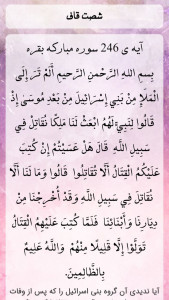 شصت قاف
آیه ی 246 سوره مبارکه بقره
بِسمِ اللهِ الرَّحْمنِ الرَّحیمِ أَلَمْ تَرَ إِلَى
الْمَلَإِ مِنْ بَنِي إِسْرَائِيلَ مِنْ بَعْدِ مُوسَىٰ إِذْ
قَالُوا لِنَبِيٍّ لَهُمُ ابْعَثْ لَنَا مَلِكًا نُقَاتِلْ فِي
سَبِيلِ اللَّهِ ۖ قَالَ هَلْ عَسَيْتُمْ إِنْ كُتِبَ
عَلَيْكُمُ الْقِتَالُ أَلَّا تُقَاتِلُوا ۖ قَالُوا وَمَا لَنَا أَلَّا
نُقَاتِلَ فِي سَبِيلِ اللَّهِ وَقَدْ أُخْرِجْنَا مِنْ
دِيَارِنَا وَأَبْنَائِنَا ۖ فَلَمَّا كُتِبَ عَلَيْهِمُ الْقِتَالُ
تَوَلَّوْا إِلَّا قَلِيلًا مِنْهُمْ ۗ وَاللَّهُ عَلِيمٌ
بِالظَّالِمِينَ.
آیا ندیدی آن گروه بنی اسرائیل را که پس از وفات